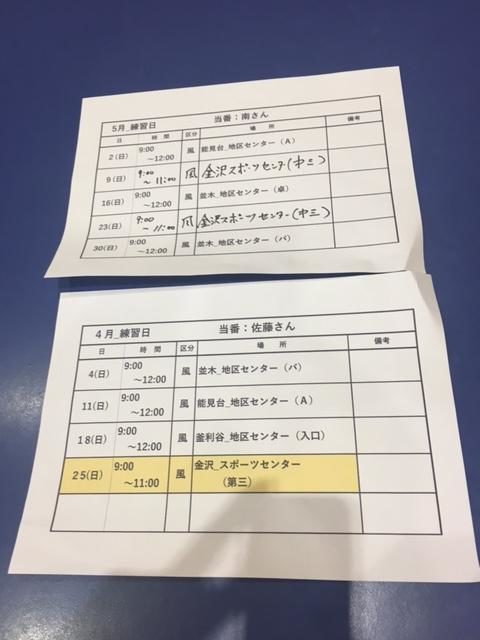 5月_練習日 当番：南さん
日 時間 区分 場所 備考
2(日) 9:00～12:00 風 能見台_地区センター（A）
9(日) 9:00～11:00 風 金沢スポーツセンター(中三)
16(日) 9:00～12:00 風 並木_地区センター（卓）
23(日) 9:00～11:00 風 金沢スポーツセンター(中三)
30(日) 9:00～12:00 風 並木_地区センター（バ）
4月_練習日 当番：佐藤さん
日 時間 区分 場所 備考
4(日) 9:00～12:00 風 並木_地区センター（バ）
11(日) 9:00～12:00 風 能見台_地区センター（A）
18(日) 9:00～12:00 風 釜利谷_地区センター（入口）
25(日) 9:00～11:00 風 金沢_スポーツセンター
（第三）